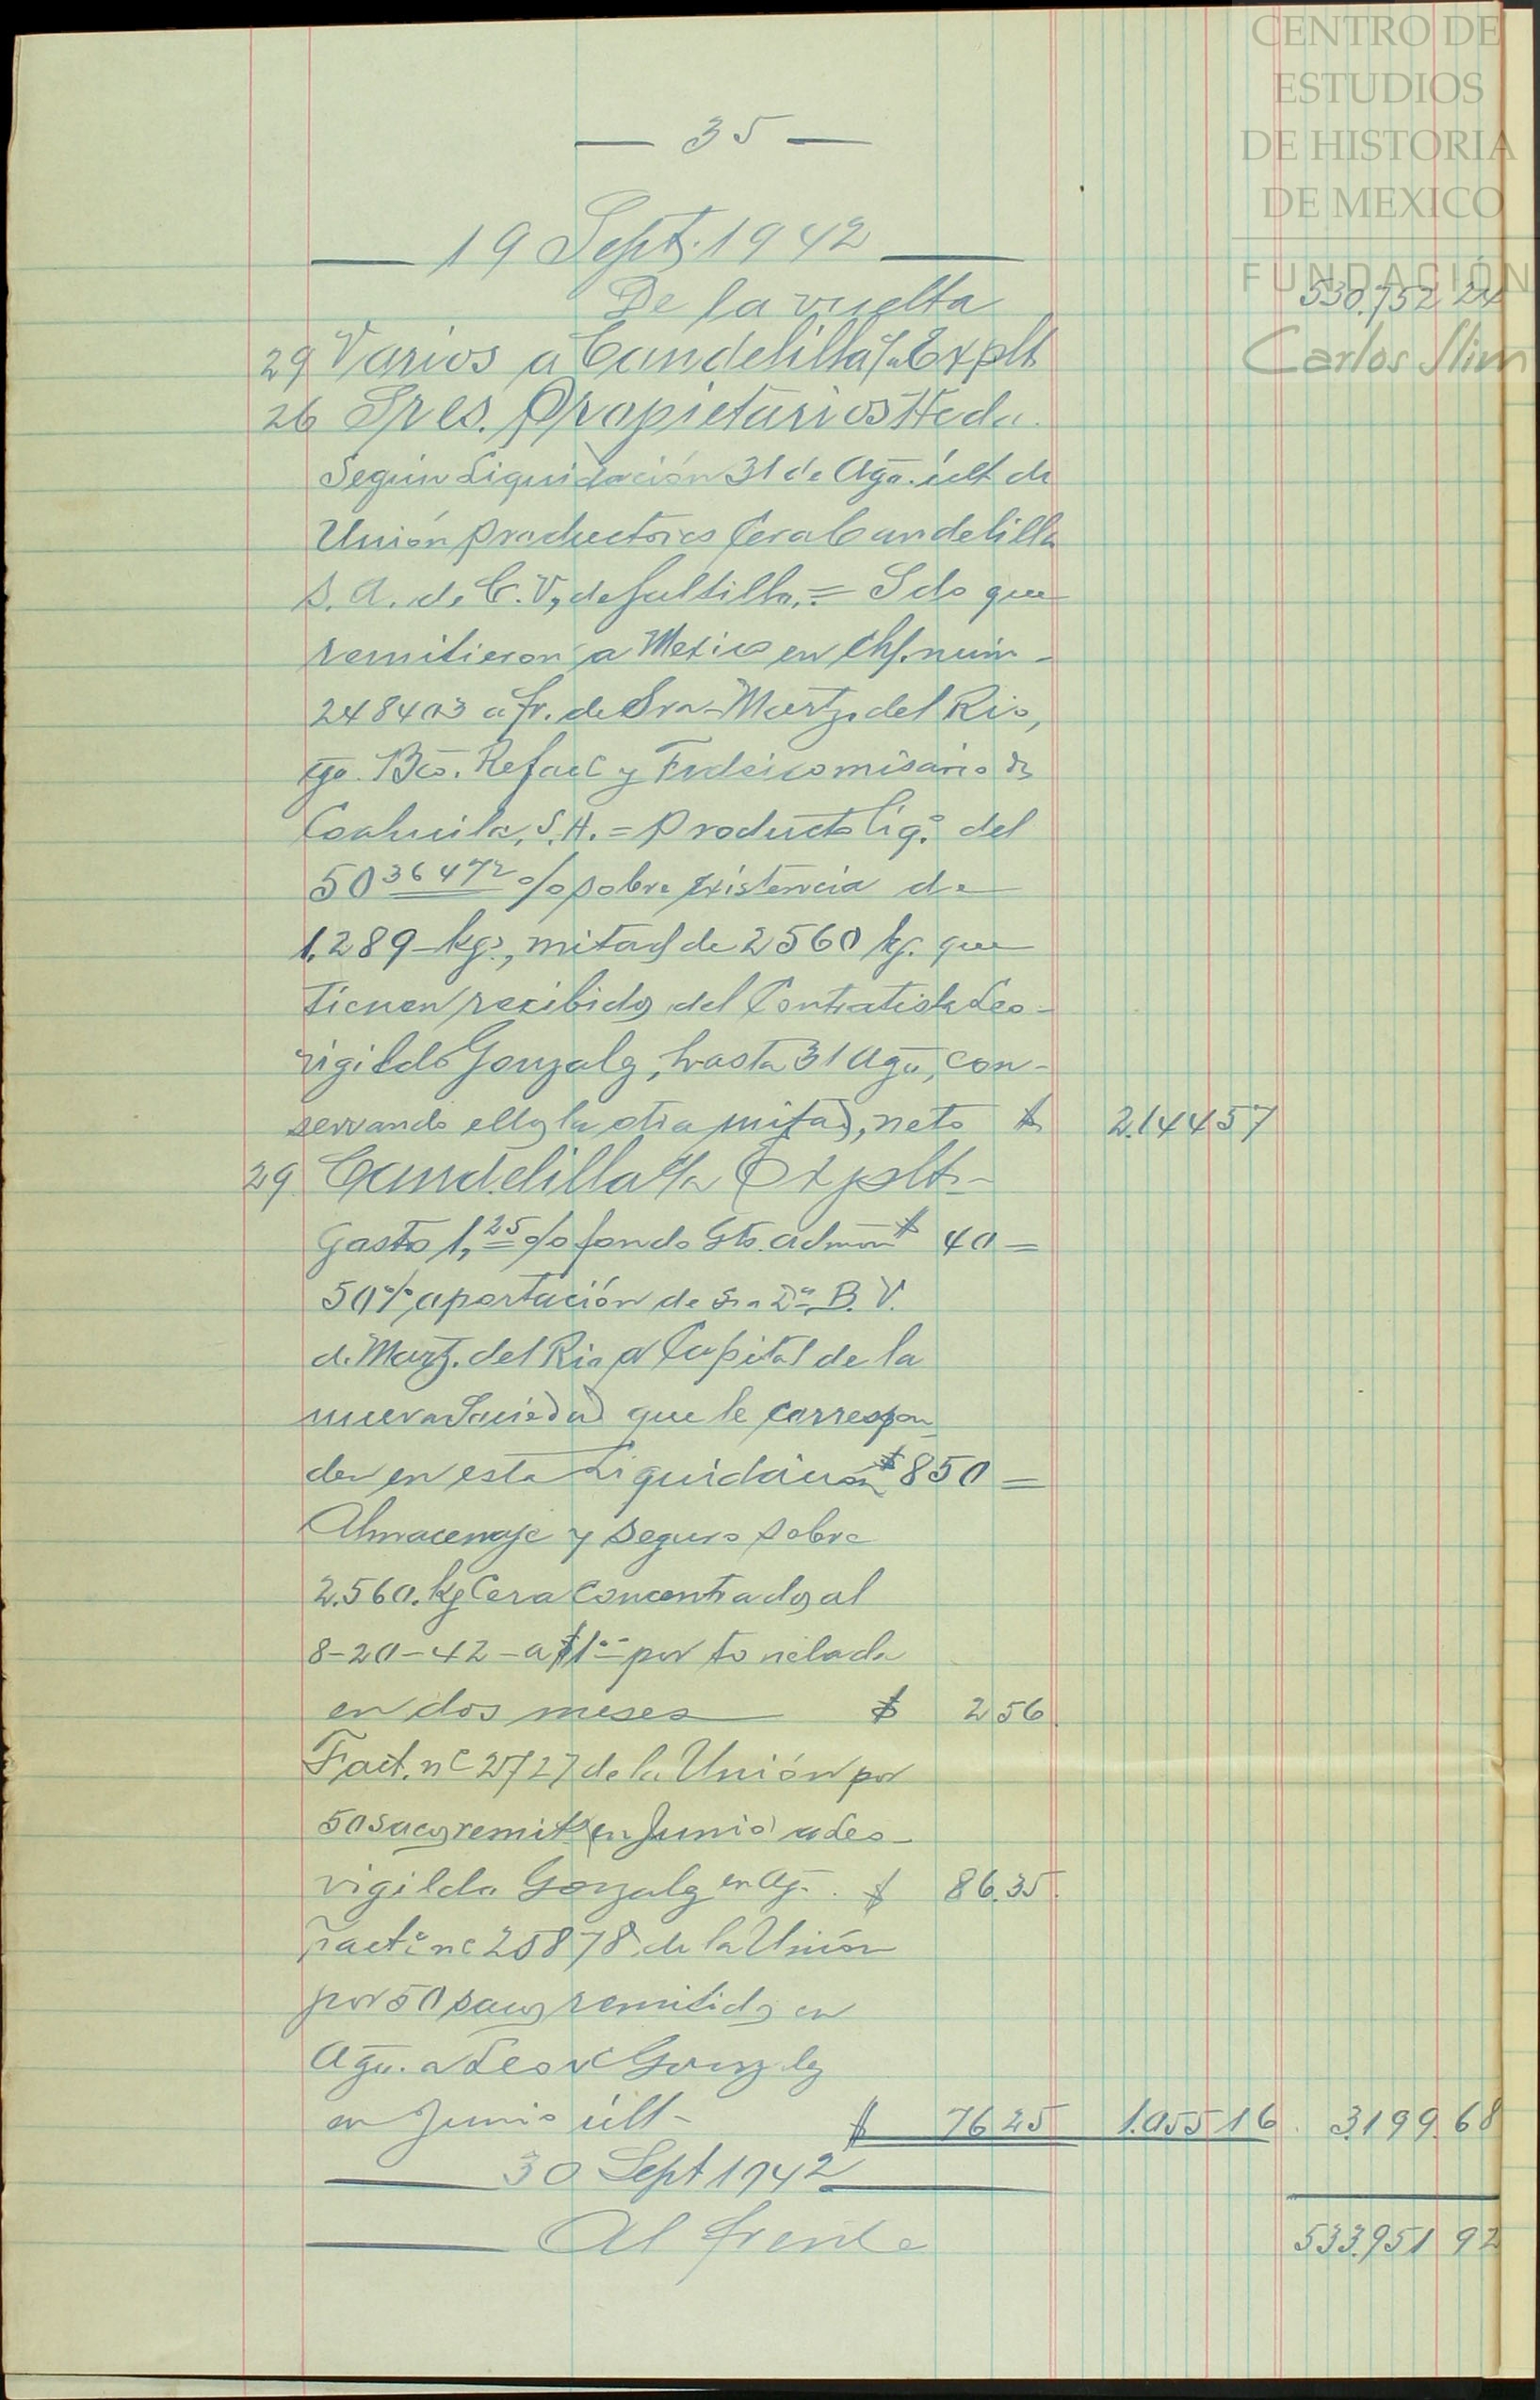 CENTRO DE
ESTUDIOS
DE HISTORIA
DE MEXICO
FUNDACIÓN
Carlos Slim
— 35 —
19 Sept. 1942
De la vuelta 530.752 24
29 Varios a Candelilla Explt
26 Sres. Propietarios Hcda.
Según Liquidación 31 de Ago. últ de
Unión Productores Cera Candelilla
S. A. de C. V, de Saltillo, = Sdo que
remitieron a Mexico en Ch/. núm-
248403 a fr. de Sra Martz. del Rio,
cgo. Bco. Refacc y Fideicomisario de
Coahuila, S.A. = Producto líq.º del
50 36472 % sobre existencia de
1.289 kgs, mitad de 2560 kg. que
tienen recibidos del Contratista Leo-
vigildo Gonzalez, hasta 31 Ago, con-
servando ellos la otra mitad, neto $ 2.144 57
29 Candelilla Explt-
Gasto 1,25 % fondo Gto. admón $ 40 =
50% aportación de Sra Dª B. V.
d. Martz. del Rio a Capital de la
nueva Sociedad que le correspon
der en esta Liquidación $ 850 =
Almacenaje y seguro sobre
2.560. kg Cera Concentrados al
8-20-42 - a $1.00 por tonelada
en dos meses $ 2 56
Fact. nº 2727 de la Unión por
50 sacos remit en Junio a Leo-
vigildo Gonzalez en Ag. $ 86.35
Fact. nº 25878 de la Unión
por 50 sacos remitidos en
Ago. a Leovº Gonzalez
en Junio últ- $ 76 25 1.055 16 3.199.68
30 Sept 1942
Al frente 533.951 92